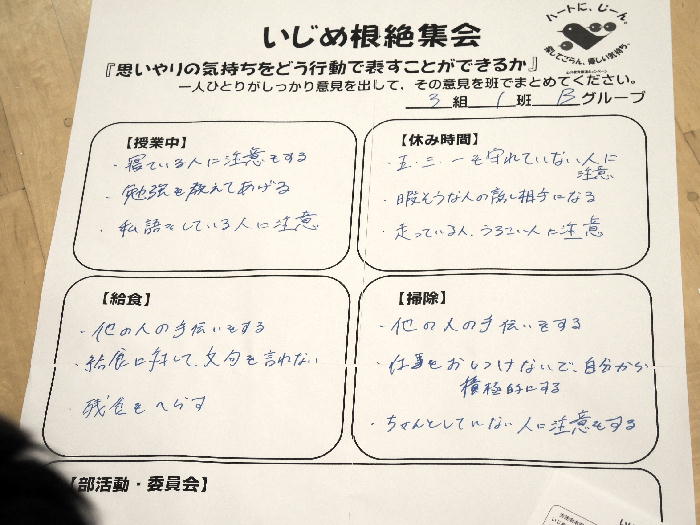 ハートに、じーん。
探してごらん、優しい気持ち。
いじめ根絶集会
『思いやりの気持ちをどう行動で表すことができるか』
一人ひとりがしっかり意見を出して、その意見を班でまとめてください。
3組 1班 Bグループ
【授業中】
・寝ている人に注意をする
・勉強を教えてあげる
・私語をしている人に注意
【休み時間】
・五.三.一を守れていない人に
注意
・暇そうな人の話し相手になる
・走っている人、うるさい人に注意
【給食】
・他の人の手伝いをする
・給食に対して、文句を言わない
・残食をへらす
【掃除】
・他の人の手伝いをする
・仕事をおしつけないで、自分から
積極的にする
・ちゃんとしていない人に注意をする
【部活動・委員会】